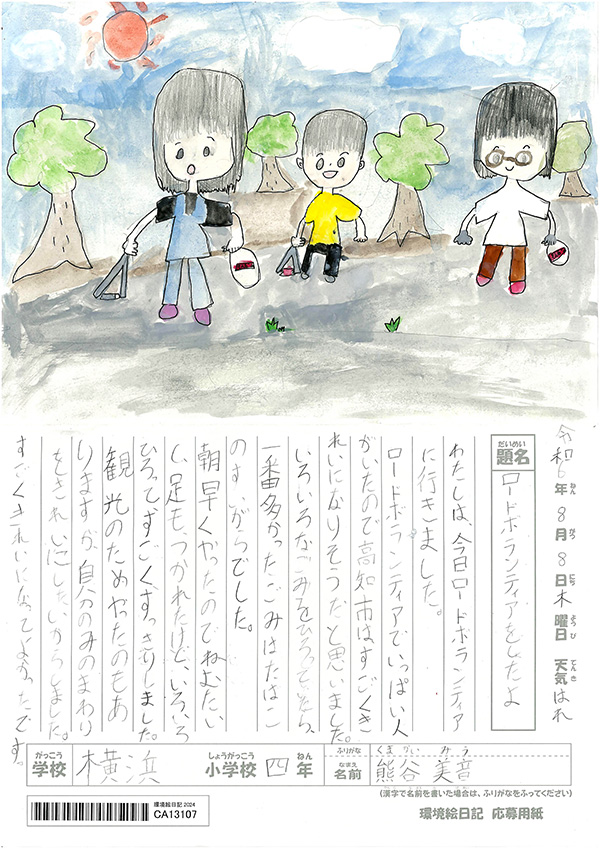 令和6年8月8日木曜日 天気はれ
ねん がつ にち よう び てん き
だいめい
題名
ロードボランティアをしたよ
わたしは、今日ロードボランティア
に行きました。
ロードボランティアでいっぱい人
がいたので高知市はすごくき
れいになりそうだと思いました。
いろいろなごみをひろっていたら、
一番多かったごみはたばこ
のすいがらでした。
朝早くやったのでねむたい
し、足も、つかれたけど、いろいろ
ひろってすごくすっきりしました。
観光のためやたのもあ
りますが、自分のみのまわり
をきれいにしたいからしました。
すごくきれいになってよかったです。
がっこう しょうがっこう ねん ふりがな くまがい みう
学校 横浜 小学校 四年 なまえ 名前 熊谷 美音
(漢字で名前を書いた場合は、ふりがなをふってください)
環境絵日記 2024
CA13107
環境絵日記 応募用紙